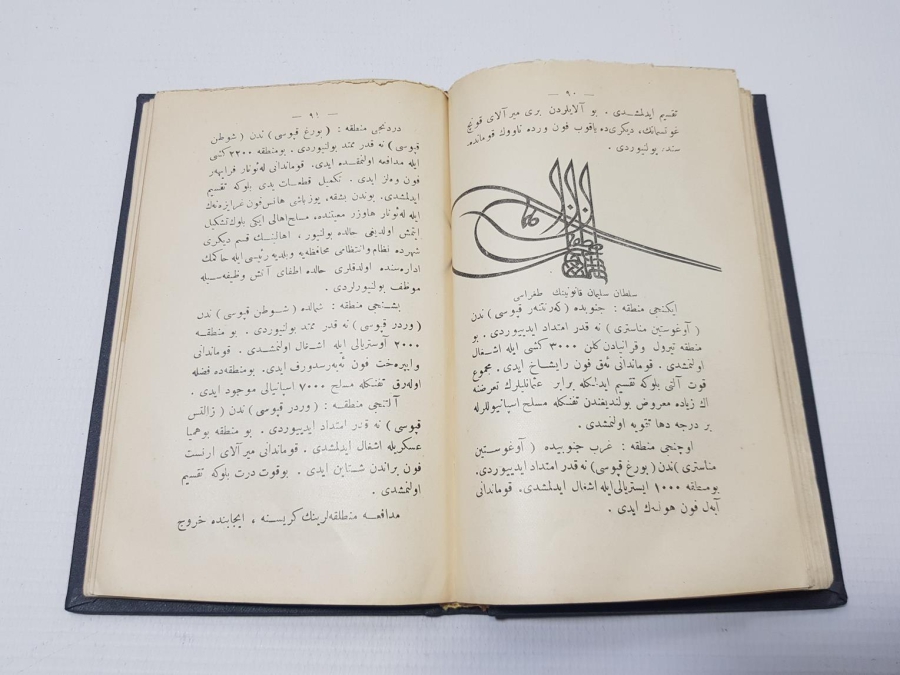 — ٩٠ —
تقسیم ایدلمشدی . بو آلایلردن بری میر آلای قونچ
غونسیانك، دیکری‌ده یاقوب فون ورده ناووك قومانده.
سنده بولنیوردی .
سلطان سلیمان قانونینك طغراسی
ایکنجی منطقه : جنوبده ( کەرنتنەر قپوسی ) ندن
( آوغوستین مناستری ) نه قدر امتداد ایدییوردی . بو
منطقه تیرول و قرانیادن کلن ٣٠٠٠ کشی ایله اشغال
اولنمشدی . قوماندانی ئەق فون رایشاخ ایدی . مجموع
قوت آلتی بلوکه تقسیم ایدلمکله برابر عثمانلیلرك تعرضنه
اك زیاده معروض بولندیغندن تفنکله مسلح اسپانیوللرله
بر درجه دها تقویه اولنمشدی .
اوچنجی منطقه : غرب جنوبیده ( آوغوستین
مناستری ) ندن ( بورغ قپوسی ) نه قدر امتداد ایدییوردی.
بومنطقه ١٠٠٠ ایستریالی ایله اشغال ایدلمشدی. قوماندانی
آبەل فون هولەك ایدی .
— ٩١ —
دردنجی منطقه : ( بورغ قپوسی ) ندن ( شوطن
قپوسی ) نه قدر ممتد بولنیوردی . بومنطقه ٢٢٠٠ کشی
ایله مدافعه اولنمقده ایدی. قوماندانی لەئونار فرایهەر
فون وەلز ایدی . تکمیل قطعات یدی بلوکه تقسیم
ایدلمشدی. بوندن بشقه، یوزباشی هانس فون
ایله لەئونار هاوزر معیتنده، مسلح اهالی ایکی بلوك تشکیل
ایتمش اولدیغی حالده بولنیور ، اهالینك قسم دیکری
شهرده نظام وانتظامی محافظه‌یه وبلدیه رئیسی ایله حاکمك
اداره‌سنده اولدقلری حالده اطفای آتش وظیفه‌سیله
موظف بولنیورلردی .
بشنجی منطقه : شمالده ( شوطن قپوسی ) ندن
( وردر قپوسی ) نه قدر ممتد بولنیوردی . بو منطقه
٢٠٠٠ آوستریالی ایله اشغال اولنمشدی . قوماندانی
وایپرەخت فون ئەبەرسدورف ایدی. بومنطقه‌ده فضله
اوله‌رق تفنکله مسلح ٧٠٠٠ اسپانیالی موجود ایدی .
آلتنجی منطقه : ( وردر قپوسی ) ندن ( زالتس
قپوسی ) نه قدر امتداد ایدییوردی . بو منطقه بوهمیا
عسکریله اشغال ایدلمشدی . قوماندانی میر آلای ارنست
فون براندن شتاین ایدی . بوقوت درت بلوکه تقسیم
اولنمشدی .
مدافعه منطقه‌لرینك کریسنه ، ایجابنده خروج